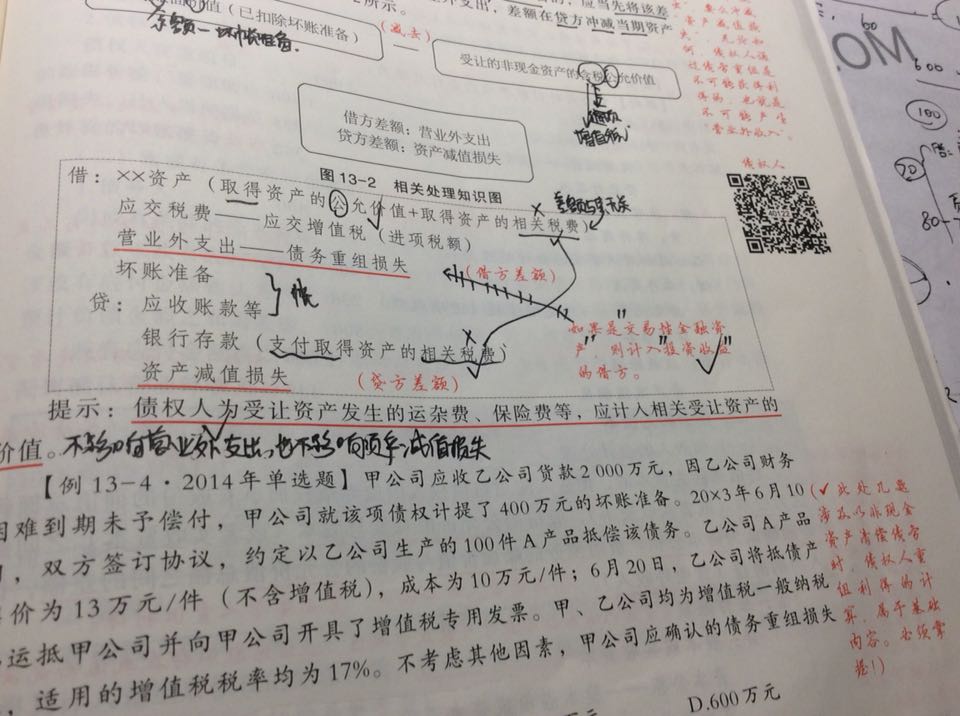 2所示。
外支出,差额在贷方冲减当期资产
价值(已扣除坏账准备)
余额-坏账准备.
(减去)
受让的非现金资产的含税公允价值
增值税
借方差额:营业外支出
贷方差额:资产减值损失
图 13-2 相关处理知识图
借:××资产(取得资产的公允价值+取得资产的相关税费)
应交税费——应交增值税(进项税额)
营业外支出——债务重组损失
(借方差额)
坏账准备
贷:应收账款等
银行存款(支付取得资产的相关税费)
资产减值损失
(贷方差额)
如果是"交易性金融资
产",则计入"投资收益"
的借方。
提示:债权人为受让资产发生的运杂费、保险费等,应计入相关受让资产的
价值。
不影响营业外支出,也不影响资产减值损失
【例 13-4·2014年单选题】甲公司应收乙公司货款2 000万元,因乙公司财务
困难到期未予偿付,甲公司就该项债权计提了400万元的坏账准备。20×3年6月10
,双方签订协议,约定以乙公司生产的100件A产品抵偿该债务。乙公司A产品
价为13万元/件(不含增值税),成本为10万元/件;6月20日,乙公司将抵债产
运抵甲公司并向甲公司开具了增值税专用发票。甲、乙公司均为增值税一般纳税
,适用的增值税税率均为17%。不考虑其他因素,甲公司应确认的债务重组损失
D.600万元
资产减值损
失"。无论如
何,债权人通
过债务重组是
不可能获得利
得的,也就是
不可能产生
"营业外收入"。
债权人
40122
(✓此处几题
涉及以非现金
资产清偿债务
时,债权人重
组利得的计
算,属于基础
内容。必须掌
握!)
.OM
60
600
100
70
80